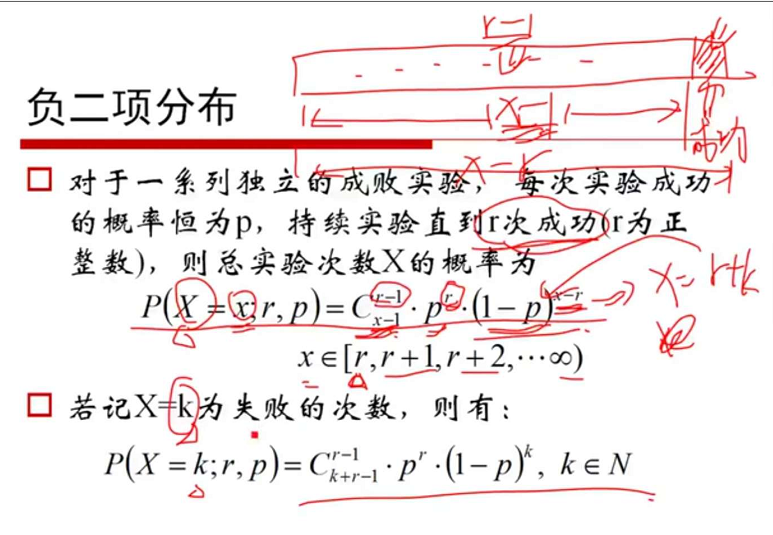 r-1
负二项分布
x-1
成功
□ 对于一系列独立的成败实验，每次实验成功
的概率恒为p，持续实验直到r次成功(r为正
整数)，则总实验次数X的概率为
P(X = x; r, p) = C_{x-1}^{r-1} · p^r · (1 − p)^{x-r}
x = r+k
x ∈ [r, r+1, r+2, ⋯∞)
□ 若记X=k为失败的次数，则有：
P(X = k; r, p) = C_{k+r-1}^{r-1} · p^r · (1 − p)^k, k ∈ N